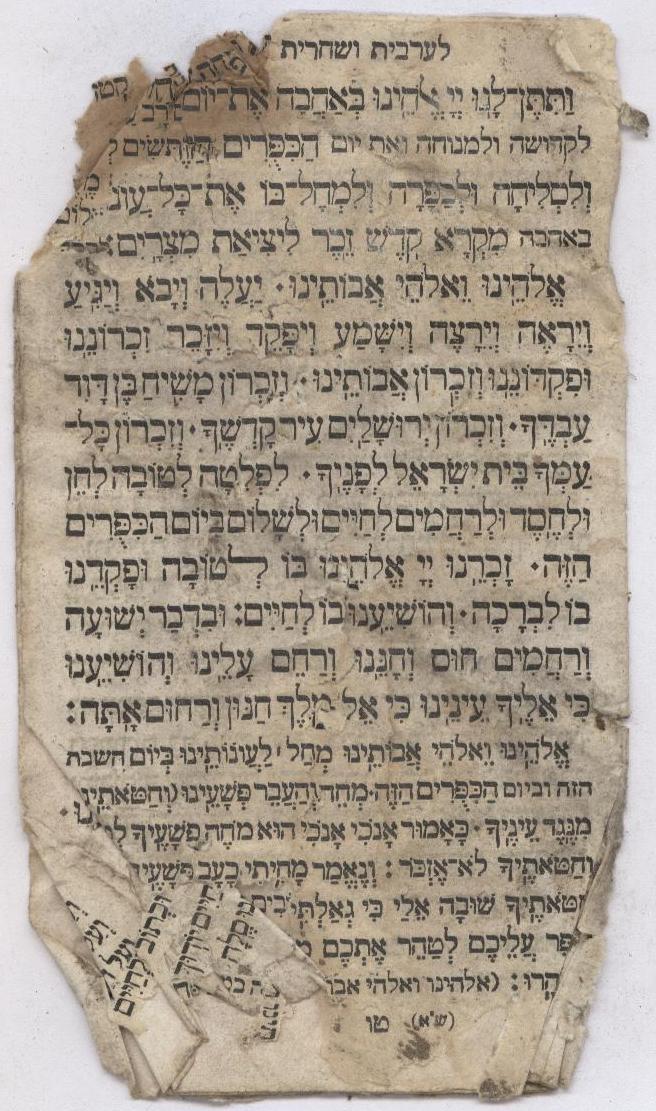 לערבית ושחרית
וַתִּתֶּן־לָנוּ יְיָ אֱלֹהֵינוּ בְּאַהֲבָה אֶת־יוֹם
לקדושה ולמנוחה ואת יום הַכִּפֻּרִים הַזֶּה
וְלִסְלִיחָה וּלְכַפָּרָה וְלִמְחָל־בּוֹ אֶת־כָּל־עֲוֹנ
באהבה מִקְרָא קֹדֶשׁ זֵכֶר לִיצִיאַת מִצְרָיִם
אֱלֹהֵינוּ וֵאלֹהֵי אֲבוֹתֵינוּ· יַעֲלֶה וְיָבֹא וְיַגִּיעַ
וְיֵרָאֶה וְיֵרָצֶה וְיִשָּׁמַע וְיִפָּקֵד וְיִזָּכֵר זִכְרוֹנֵנוּ
וּפִקְדוֹנֵנוּ וְזִכְרוֹן אֲבוֹתֵינוּ· וְזִכְרוֹן מָשִׁיחַ בֶּן דָּוִד
עַבְדֶּךָ· וְזִכְרוֹן יְרוּשָׁלַיִם עִיר קָדְשֶׁךָ· וְזִכְרוֹן כָּל־
עַמְּךָ בֵּית יִשְׂרָאֵל לְפָנֶיךָ· לִפְלֵטָה לְטוֹבָה לְחֵן
וּלְחֶסֶד וּלְרַחֲמִים לְחַיִּים וּלְשָׁלוֹם בְּיוֹם הַכִּפֻּרִים
הַזֶּה· זָכְרֵנוּ יְיָ אֱלֹהֵינוּ בּוֹ לְטוֹבָה וּפָקְדֵנוּ
בוֹ לִבְרָכָה· וְהוֹשִׁיעֵנוּ בוֹ לְחַיִּים: וּבִדְבַר יְשׁוּעָה
וְרַחֲמִים חוּס וְחָנֵּנוּ וְרַחֵם עָלֵינוּ וְהוֹשִׁיעֵנוּ
כִּי אֵלֶיךָ עֵינֵינוּ כִּי אֵל מֶלֶךְ חַנּוּן וְרַחוּם אָתָּה:
אֱלֹהֵינוּ וֵאלֹהֵי אֲבוֹתֵינוּ מְחַל לַעֲוֹנוֹתֵינוּ בְּיוֹם השבת
הזה וביום הַכִּפֻּרִים הַזֶּה· מְחֵה וְהַעֲבֵר פְּשָׁעֵינוּ וְחַטֹּאתֵינוּ
מִנֶּגֶד עֵינֶיךָ· כָּאָמוּר אָנֹכִי אָנֹכִי הוּא מֹחֶה פְשָׁעֶיךָ
וְחַטֹּאתֶיךָ לֹא־אֶזְכֹּר: וְנֶאֱמַר מָחִיתִי כָעָב פְּשָׁעֶי
חַטֹּאתֶיךָ שׁוּבָה אֵלַי כִּי גְאַלְתִּי
פֵּר עֲלֵיכֶם לְטַהֵר אֶתְכֶם
הָרוּ: (אלהינו ואלהי אבו
(ש״א) טו
וּכְתוֹב לְחַיִּים